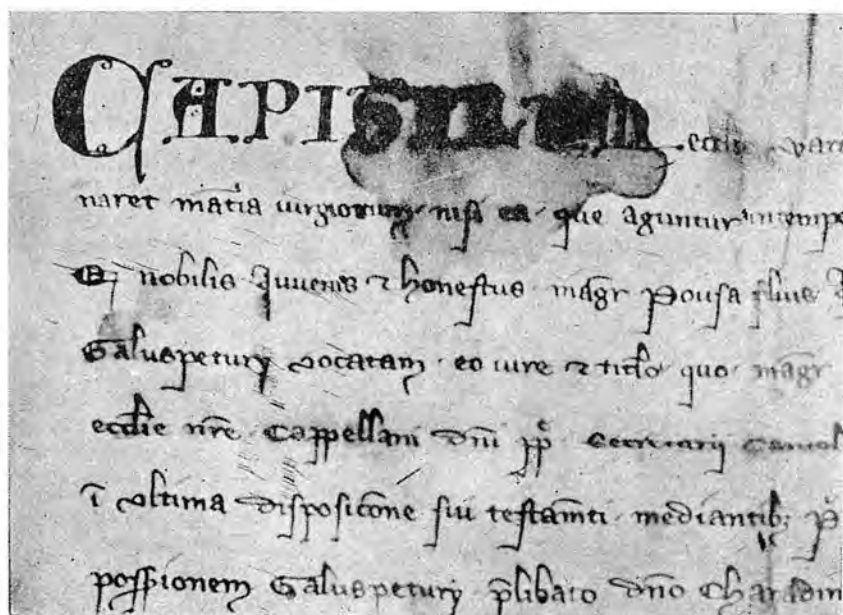 CAPITULUM ecctie vara
naret mat͞ia iurgiorum · nisi ea · que aguntur in tempo
Q nobilis Iuvenis ⁊ honestus · mag͞r Pousa filius
Galuspetury vocatam · eo iure ⁊ tit͞lo · quo · mag͞r
ecc͞lie n͞re · Cappellani d͞ni p͞p · Secretarij
i͞ ultima disposico͞ne siu testam͞ti · mediantib;
possi͞onem Galuspetury · p͞libato d͞no